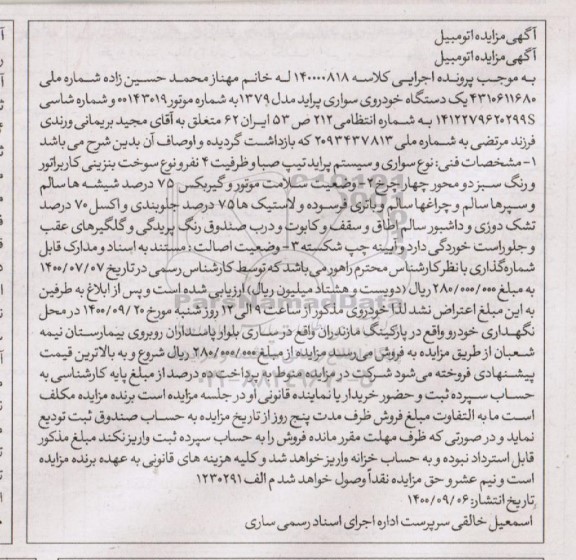 آگهی مزایده اتومبیل
آگهی مزایده اتومبیل
به موجب پرونده اجرایی کلاسه ۱۴۰۰۰۰۸۱۸ له خانم مهناز محمد حسین زاده شماره ملی
۴۳۱۰۶۱۱۶۸۰ یک دستگاه خودروی سواری پراید مدل ۱۳۷۹ به شماره موتور ۰۰۱۴۳۰۱۹ و شماره شاسی
۱۴۱۲۲۷۹۶۲۰۲۹۹S به شماره انتظامی ۲۱۲ ص ۵۳ ایران ۶۲ متعلق به آقای مجید بریمانی ورندی
فرزند مرتضی به شماره ملی ۲۰۹۳۴۳۷۸۱۳ که بازداشت گردیده و اوصاف آن بدین شرح می باشد
۱- مشخصات فنی: نوع سواری و سیستم پراید تیپ صبا و ظرفیت ۴ نفر و نوع سوخت بنزینی کاربراتور
و رنگ سبز دو محور چهار چرخ ۲- وضعیت سلامت موتور و گیربکس ۷۵ درصد شیشه ها سالم
و سپرها سالم و چراغها سالم و باتری فرسوده و لاستیک ها ۷۵ درصد جلوبندی و اکسل ۷۰ درصد
تشک دوزی و داشبور سالم اطاق و سقف و کاپوت و درب صندوق رنگ پریدگی و گلگیرهای عقب
و جلو راست خوردگی دارد و آیینه چپ شکسته ۳- وضعیت اصالت : مستند به اسناد و مدارک قابل
شماره گذاری با نظر کارشناس محترم راهور می باشد که توسط کارشناس رسمی در تاریخ ۱۴۰۰/۰۷/۰۷
به مبلغ ۲۸۰/۰۰۰/۰۰۰ ریال (دویست و هشتاد میلیون ریال) ارزیابی شده است و پس از ابلاغ به طرفین
به این مبلغ اعتراض نشد لذا خودروی مذکور از ساعت ۹ الی ۱۲ روز شنبه مورخ ۱۴۰۰/۰۹/۲۰ در محل
نگهداری خودرو واقع در پارکینگ مازندران واقع در ساری بلوار پاسداران روبروی بیمارستان نیمه
شعبان از طریق مزایده به فروش می رسد مزایده از مبلغ ۲۸۰/۰۰۰/۰۰۰ ریال شروع و به بالاترین قیمت
پیشنهادی فروخته می شود شرکت در مزایده منوط به پرداخت ده درصد از مبلغ پایه کارشناسی به
حساب سپرده ثبت و حضور خریدار یا نماینده قانونی او در جلسه مزایده است برنده مزایده مکلف
است ما به التفاوت مبلغ فروش ظرف مدت پنج روز از تاریخ مزایده به حساب صندوق ثبت تودیع
نماید و در صورتی که ظرف مهلت مقرر مانده فروش را به حساب سپرده ثبت واریز نکند مبلغ مذکور
قابل استرداد نبوده و به حساب خزانه واریز خواهد شد و کلیه هزینه های قانونی به عهده برنده مزایده
است و نیم عشر و حق مزایده نقداً وصول خواهد شد م الف ۱۲۳۰۲۹۱
تاریخ انتشار: ۱۴۰۰/۰۹/۰۶
اسمعیل خالقی سرپرست اداره اجرای اسناد رسمی ساری
ParsNamadData